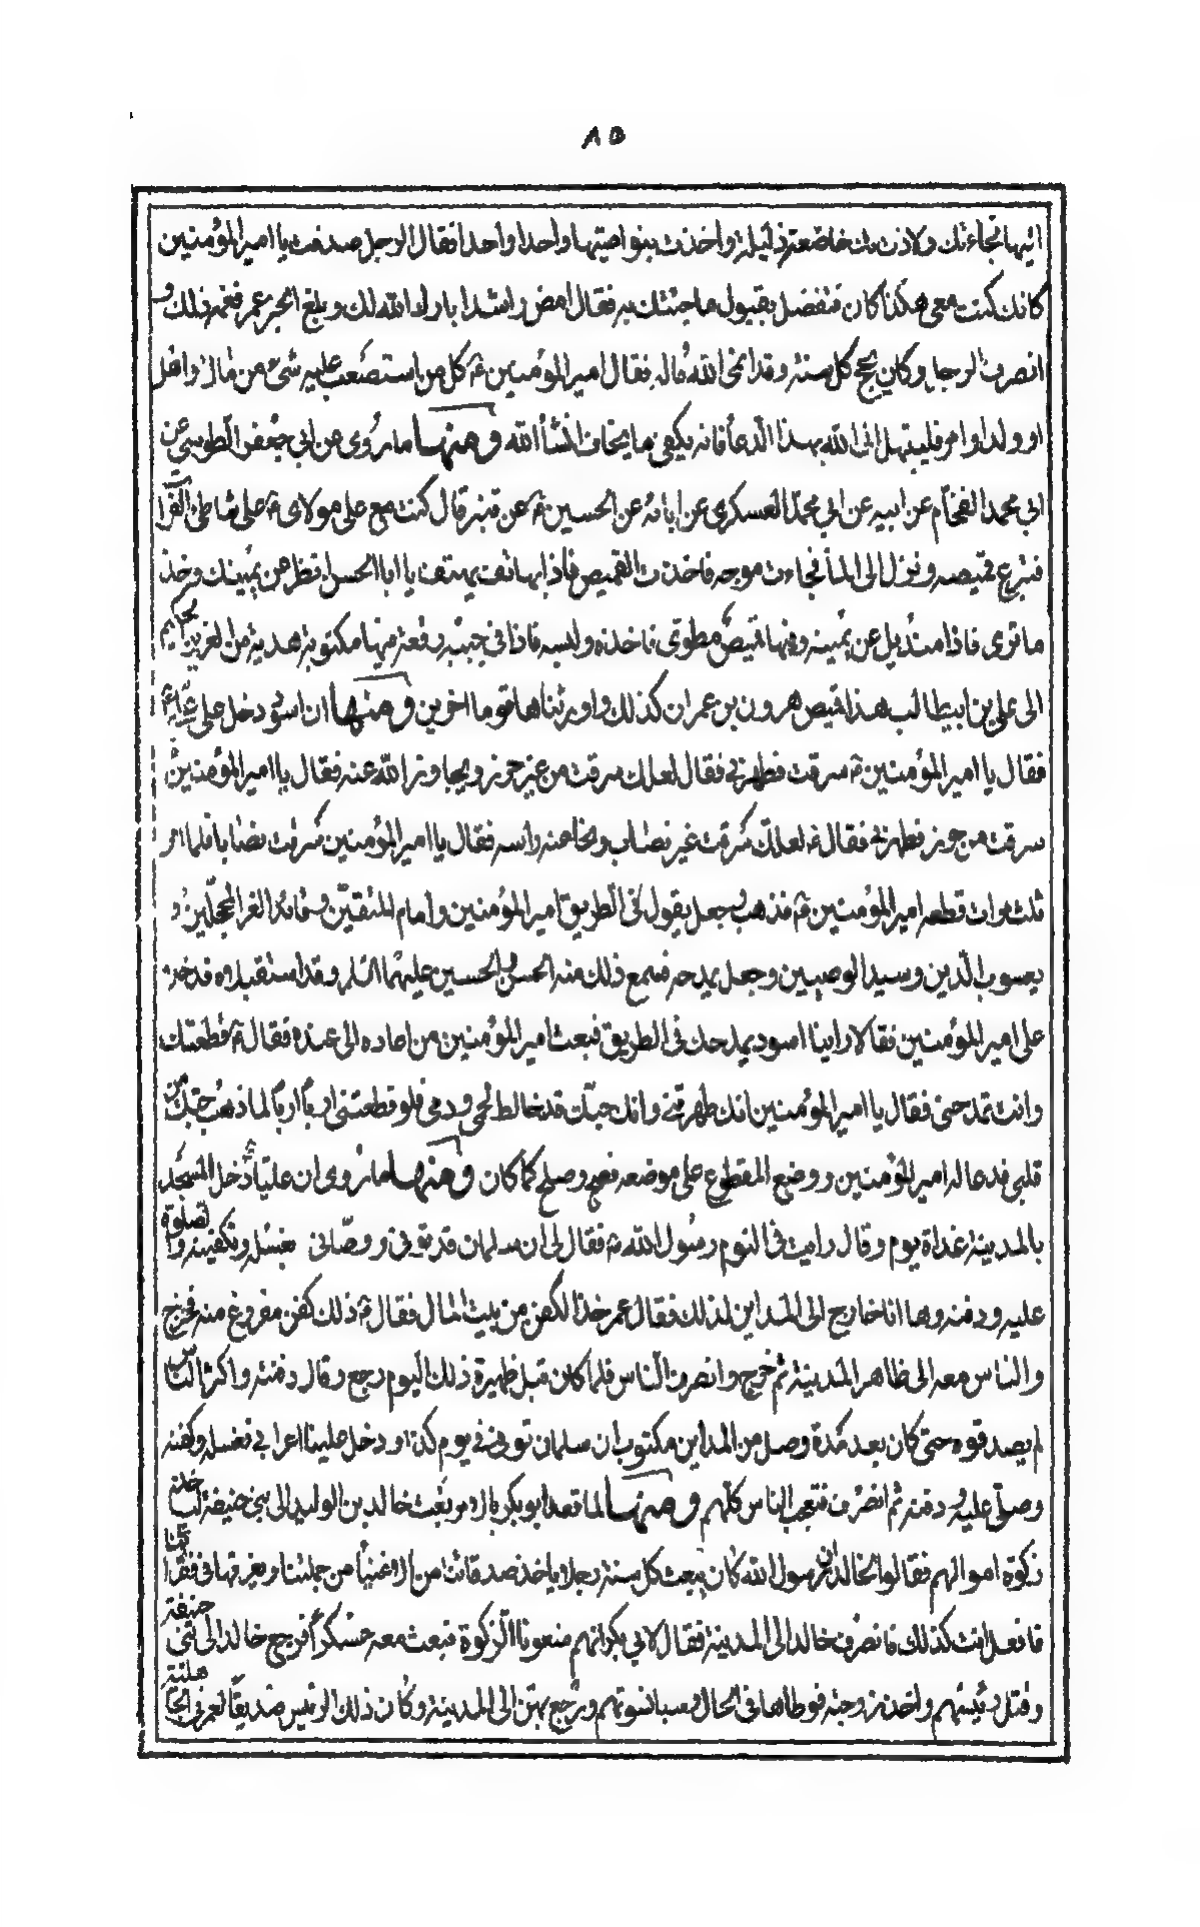 ٨٥
اليها فجاءتك ولاذت بك خاضعة ذليلة واخذت بنواصيها واحدا واحدا فقال الرجل صدقت يا امير المؤمنين
كانك كنت معى هكذا كان فتفضل بقبول ما جئتك به فقال امض راشدا بارك الله لك وبلغ الخبر عمر فغمه ذلك و
انصرف الرجل وكان يحج كل سنة وقد انمى الله ماله فقال امير المؤمنين ع كل من استصعب عليه شىء من مال او اهل
او ولد او امر فليبتهل الى الله بهذا الدعا فانه يكفى مما يخاف انشأ الله ومنها ما روى عن ابى جعفر الطوسى عن
ابى محمد الفحام عن ابيه عن ابى محمد العسكرى عن ابائه عن الحسين ع عن قنبر قال كنت مع على مولاى ع على شاطئ الفرات
فنزع قميصه ونزل الى الماء فجاءت موجه فاخذت القميص فاذا بهاتف يهتف يا ابا الحسن انظر عن يمينك وخذ
ما ترى فاذا منديل عن يمينه وفيها قميص مطوى فاخذه ولبسه فاذا فى جيبه رقعة فيها مكتوب هدية من العزيز الحكيم
الى على بن ابيطالب هذا قميص هرون بن عمران كذلك واورثناها قوما اخرين ومنها ان اسود دخل على على ع
فقال يا امير المؤمنين ع سرقت فطهرنى فقال لعلك سرقت من غير حرز ويجاوز الله عنه فقال يا امير المؤمنين
سرقت من حرز فطهرنى فقال ع لعلك سرقت غير نصاب ونحا عنه راسه فقال يا امير المؤمنين سرقت نصابا فلما اقر
ثلث مرات قطعه امير المؤمنين ع فذهب وجعل يقول فى الطريق امير المؤمنين وامام المتقين وقائد الغر المحجلين و
يعسوب الدين وسيد الوصيين وجعل يمدحه فسمع ذلك منه الحسن والحسين عليهما السلم وقد استقبلاه فدخلا
على امير المؤمنين فقالا راينا اسود يمدحك فى الطريق فبعث امير المؤمنين من اعاده الى عنده فقال ع قطعتك
وانت تمدحنى فقال يا امير المؤمنين انك طهرتنى وانك حبك قد خالط لحمى ودمى فلو قطعتنى اربا اربا لما ذهب حبك من
قلبى فدعا له امير المؤمنين ووضع المقطوع على موضعه فصح وصلح كما كان ومنها ما روى ان عليا ع دخل المسجد
بالمدينة غداة يوم وقال رايت فى النوم رسول الله ص فقال لى ان سلمان قد توفى ووصانى بغسله وتكفينه والصلوة
عليه ودفنه وها انا خارج الى المداين لذلك فقال عمر خذ الكفن من بيت المال فقال ع ذلك كفن مفروغ منه فخرج
والناس معه الى ظاهر المدينة ثم خرج وانصرف الناس فلما كان قبل ظهيرة ذلك اليوم رجع وقال دفنته واكثر الناس
لم يصدقوه حتى كان بعد مدة وصل من المداين مكتوب ان سلمان توفى فى يوم كذا ودخل علينا اعرابى فغسله وكفنه
وصلى عليه ودفنه ثم انصرف فتعجب الناس كلهم ومنها لما قعد ابو بكر بالامر بعث خالد بن الوليد الى بنى حنيفة لياخذ
زكوة اموالهم فقالوا لخالد ان رسول الله كان يبعث كل سنة رجلا ياخذ صدقاتنا من الاغنياء من جملتنا ويفرقها فى فقرائنا
فافعل انت كذلك فانصرف خالد الى المدينة فقال لابى بكر انهم منعونا الزكوة فبعث معه عسكرا فرجع خالد الى بنى حنيفة
وقتل رئيسهم واخذ زوجته فوطاها فى الحال وسبا نسوتهم ورجع بهن الى المدينة وكان ذلك الرئيس صديقا لعمر فى الجاهلية